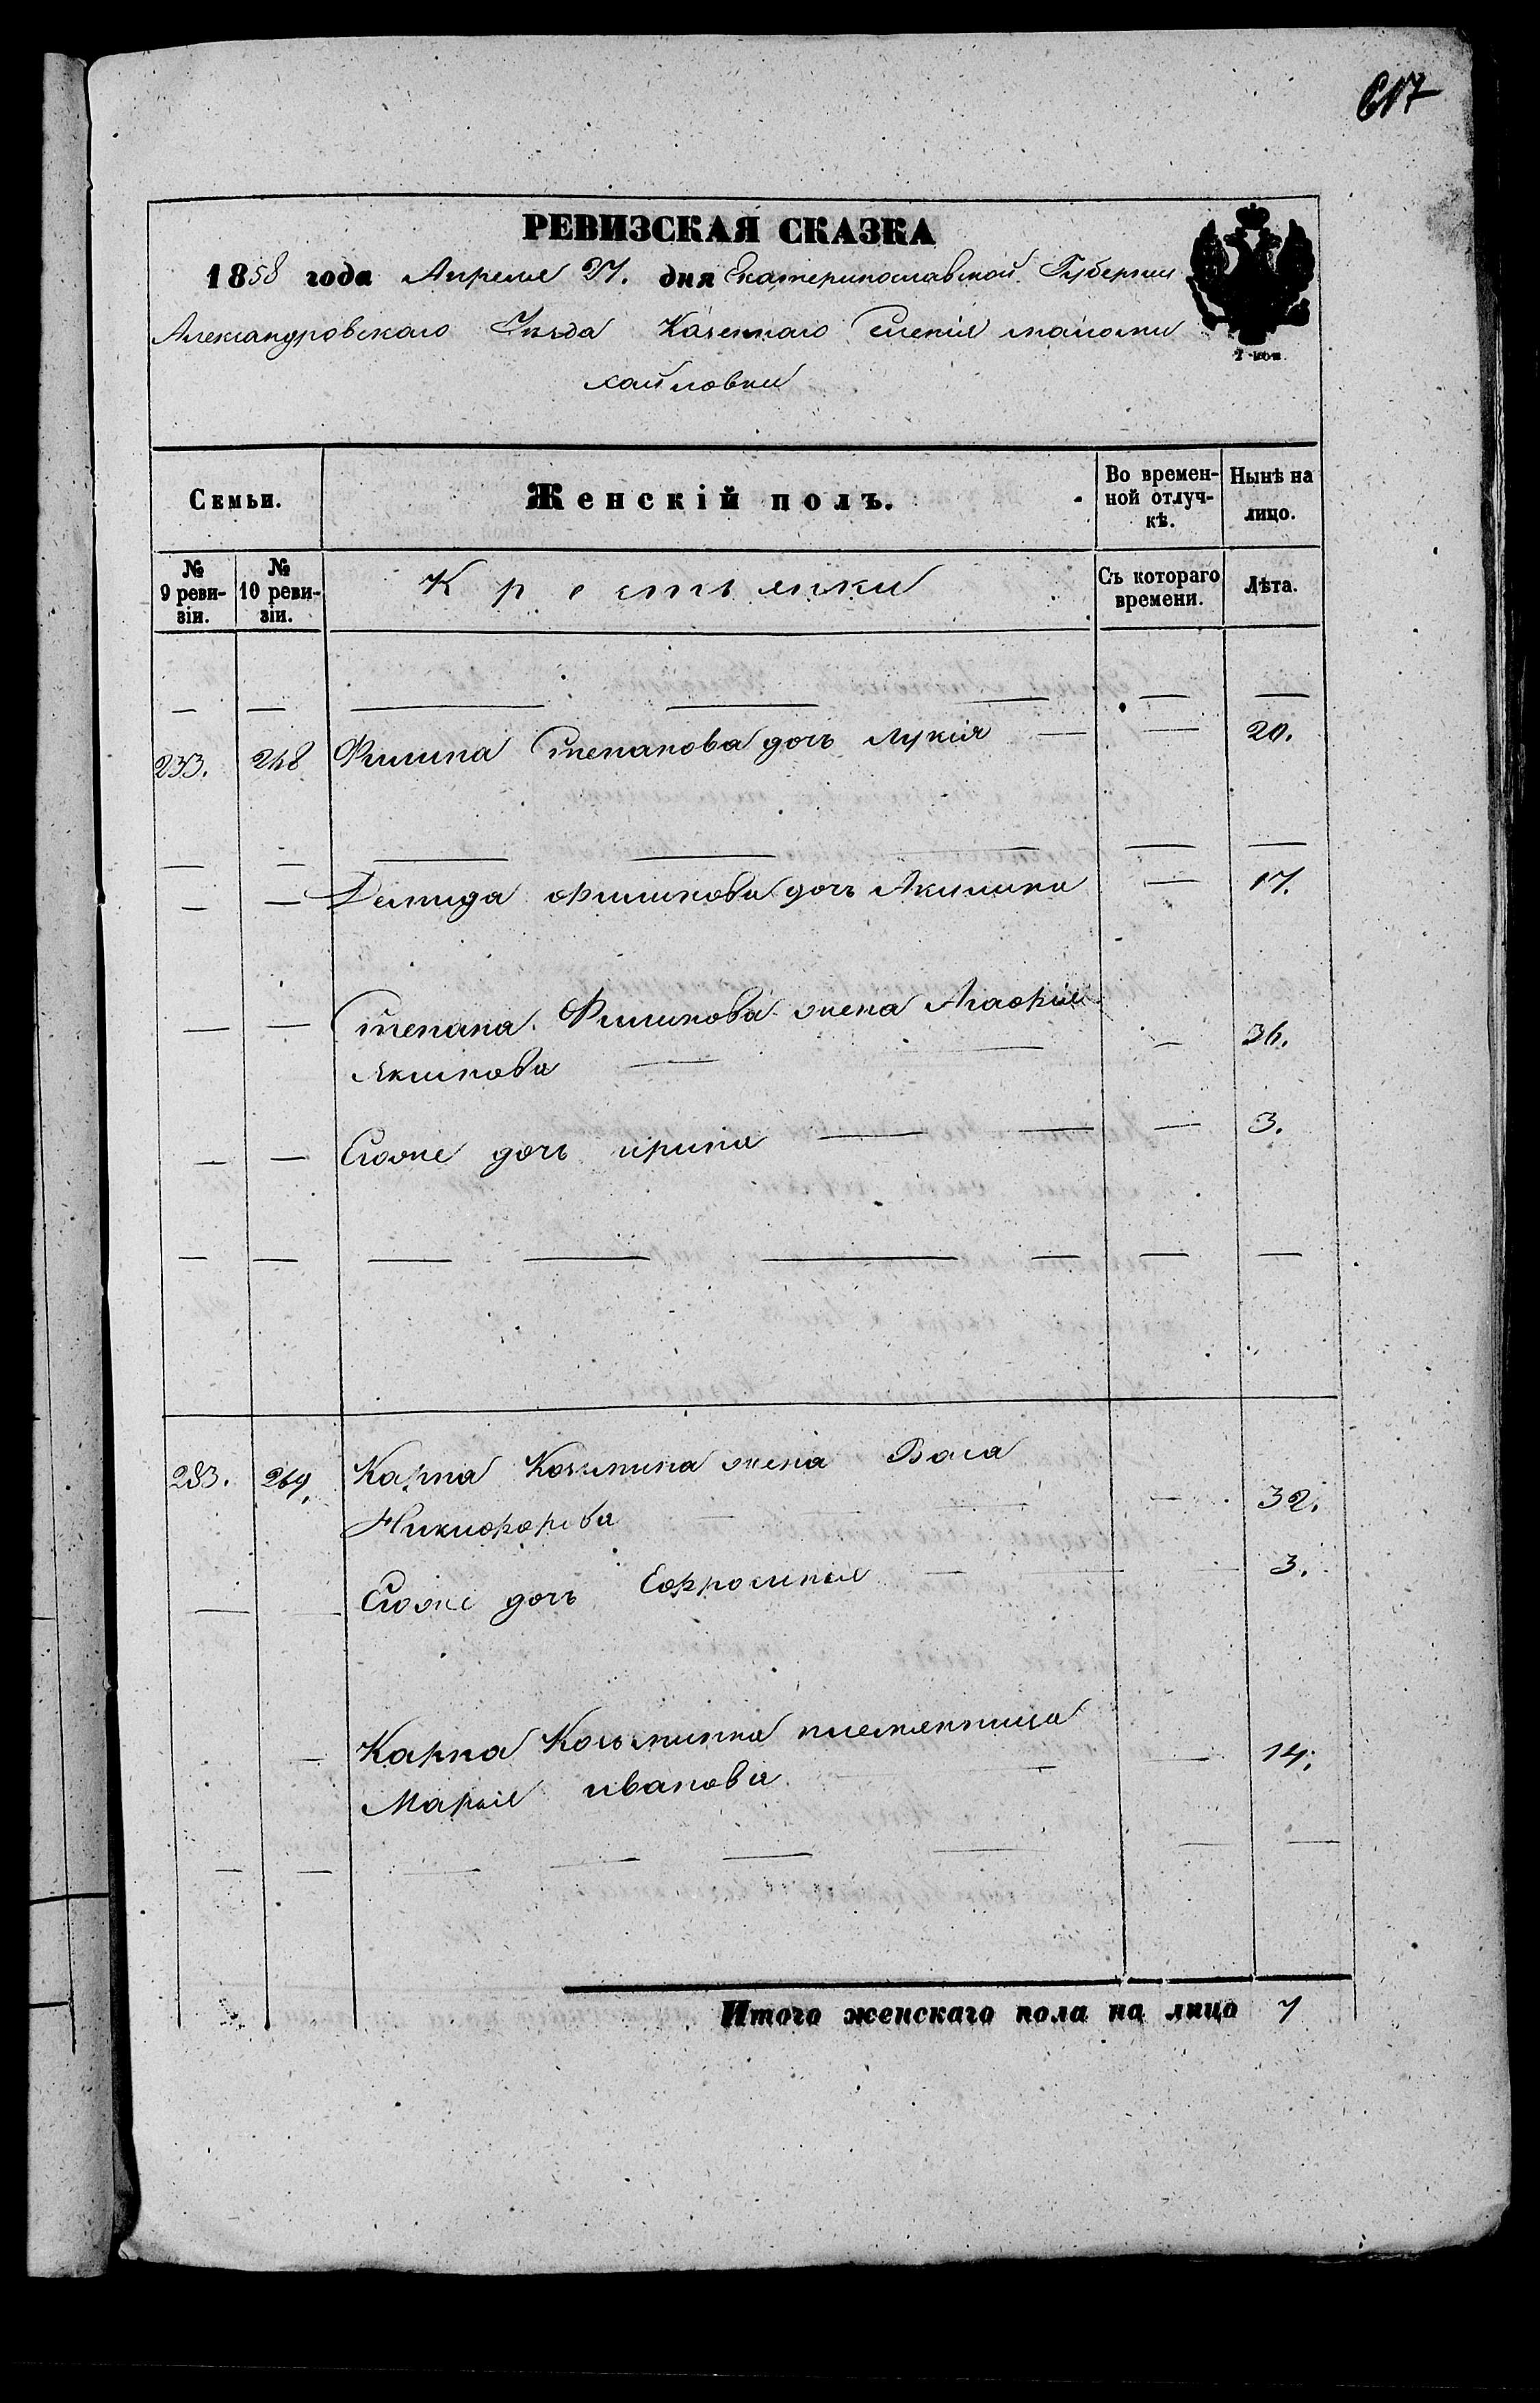 617
РЕВИЗСКАЯ СКАЗКА
1858 года Апреля 27. дня Екатеринославской Губернии
Александровскаго Уѣзда Казеннаго Селенія маломи
хайловки
2 коп.
Семьи. Женскій полъ. Во времен-ной отлуч-кѣ. Нынѣ на лицо.
№ 9 реви-зіи. № 10 реви-зіи. Крестьянки Съ котораго времени. Лѣта.
233. 248 Филипа Степанова дочь лукія — — 20.
— — Демида Филипова дочь Акилина — 17.
— — Степана Филипова жена Агафія
Якимова — — — 36.
— — Егоже дочь ирина — — — 3.
283. 249. Карпа Козьмина жена Васа
Никифорова — — — 32.
— — Егоже дочь Ефросинія — — 3.
— Карпа Козьмина племянница
Марія иванова — — 14.
Итого женскаго пола на лицо 7